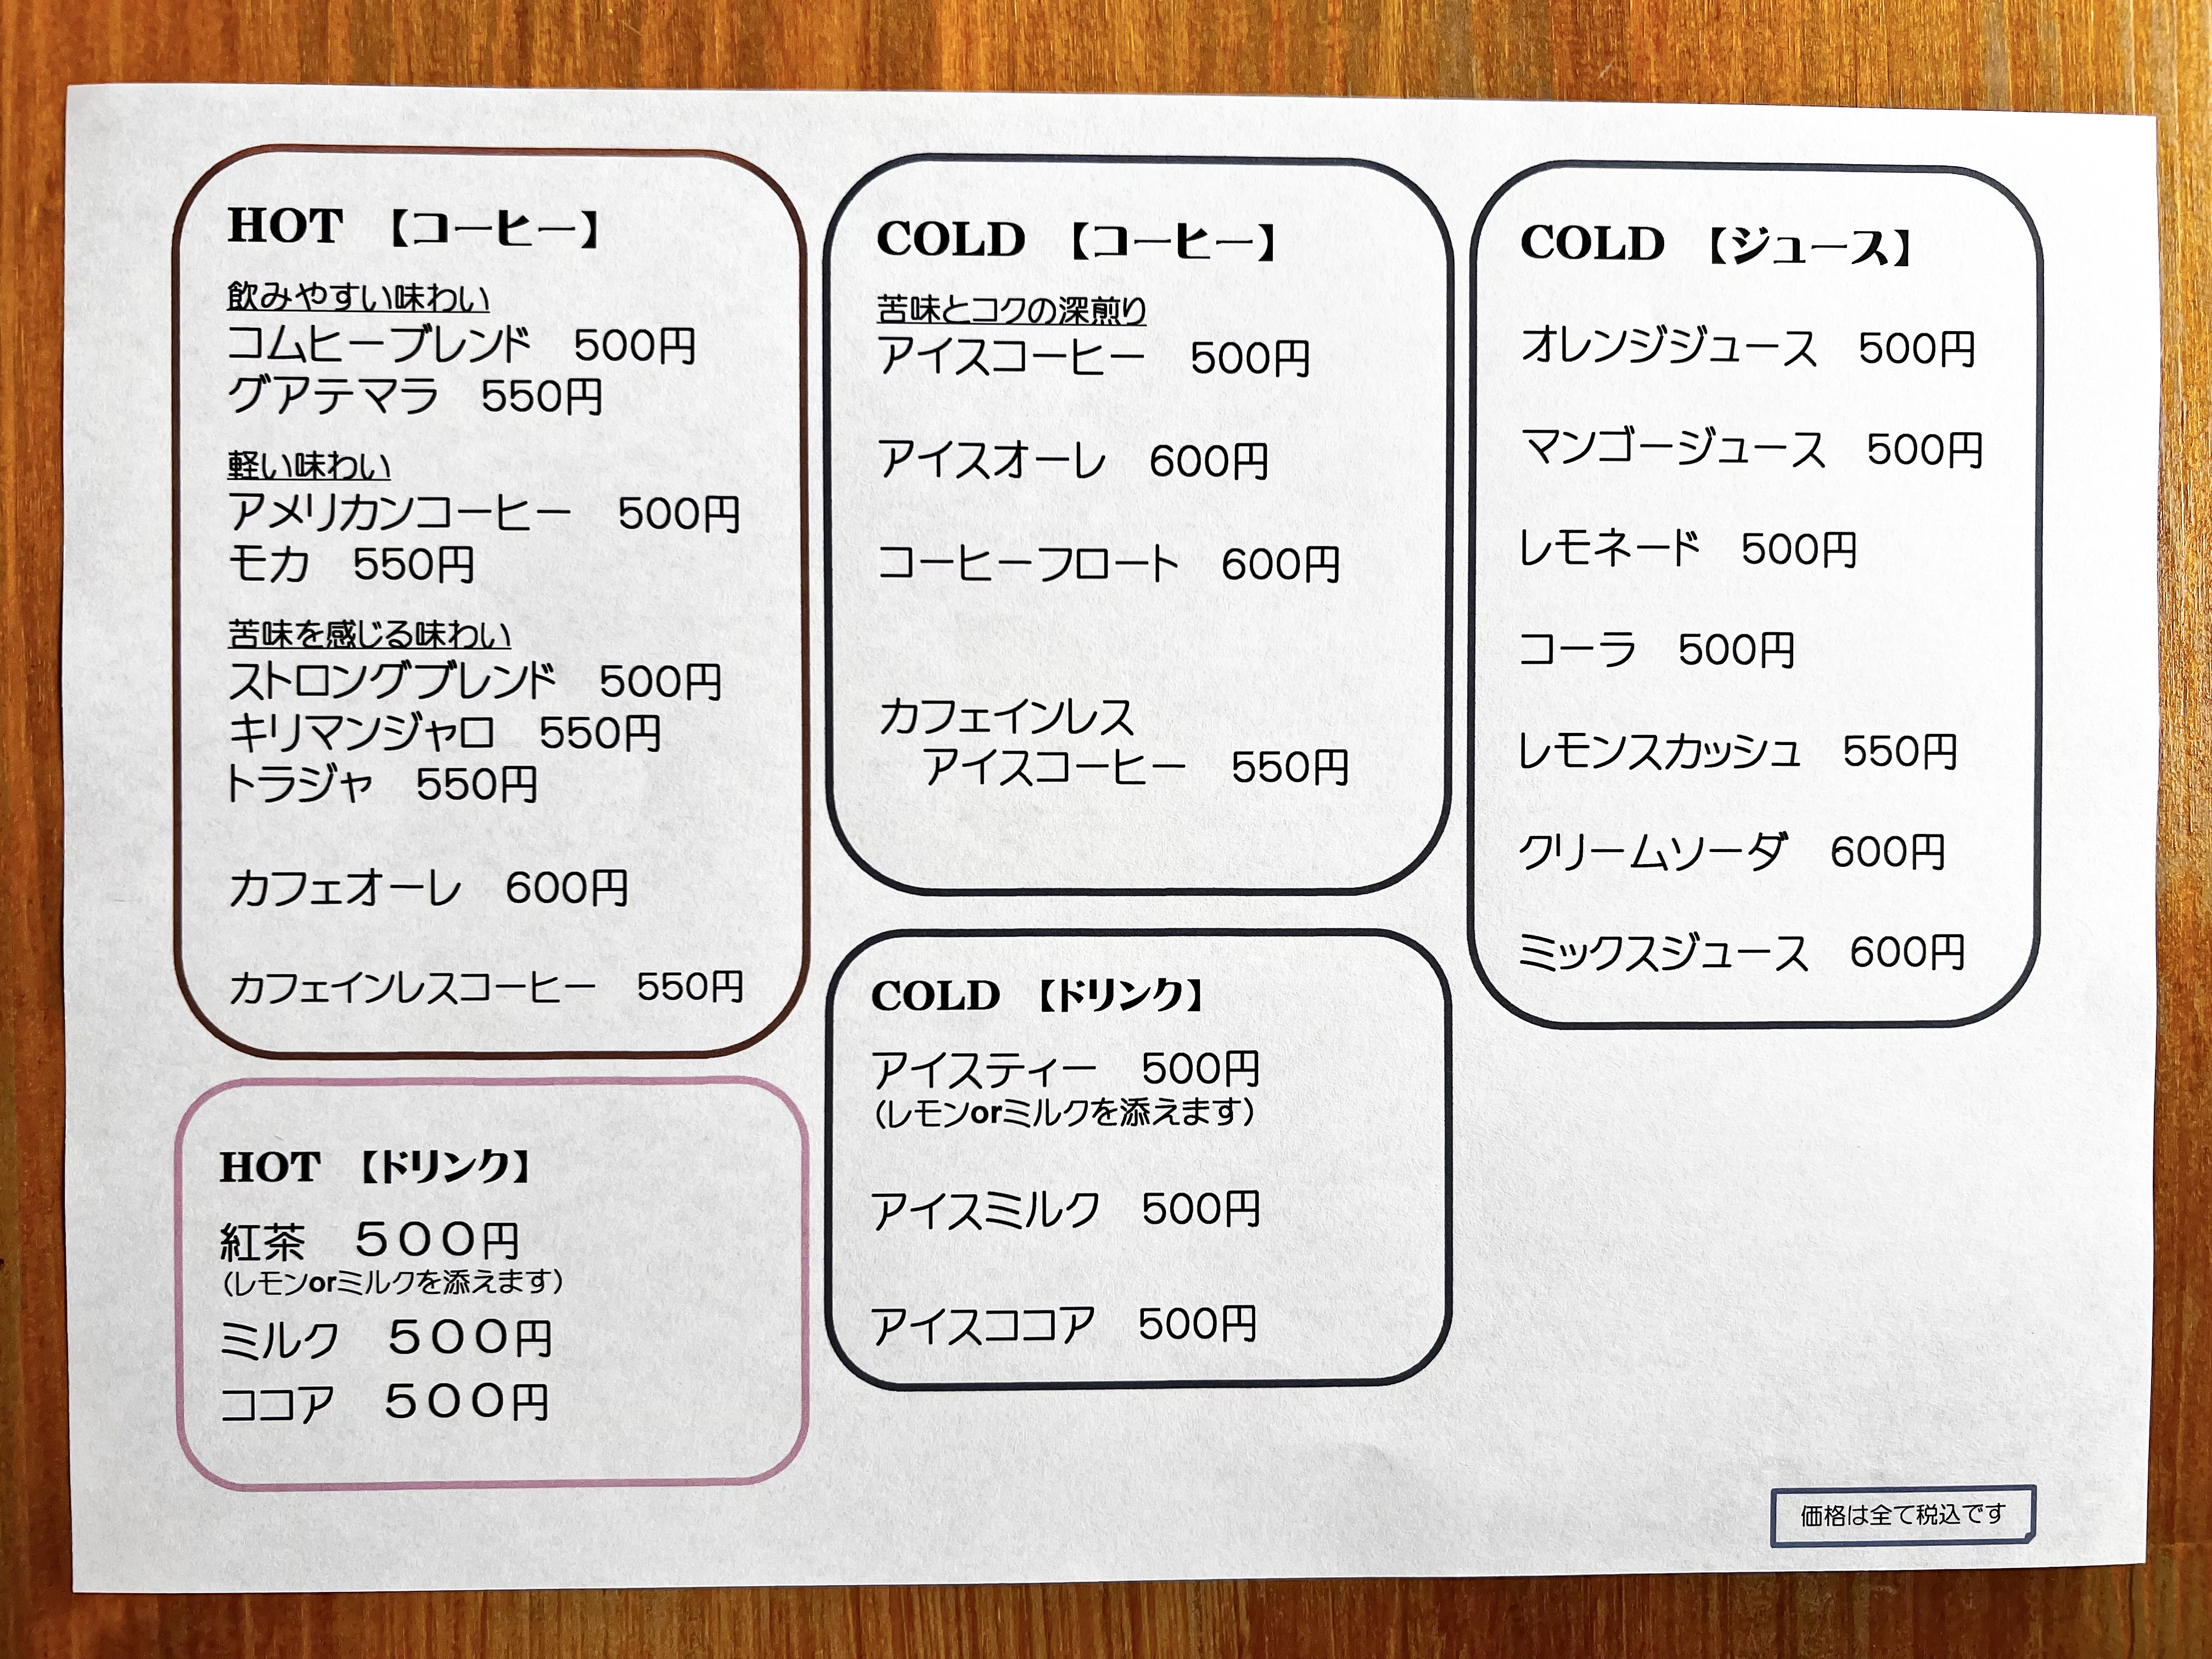 HOT 【コーヒー】
飲みやすい味わい
コムヒーブレンド 500円
グアテマラ 550円
軽い味わい
アメリカンコーヒー 500円
モカ 550円
苦味を感じる味わい
ストロングブレンド 500円
キリマンジャロ 550円
トラジャ 550円
カフェオーレ 600円
カフェインレスコーヒー 550円
HOT 【ドリンク】
紅茶 500円
(レモンorミルクを添えます)
ミルク 500円
ココア 500円
COLD 【コーヒー】
苦味とコクの深煎り
アイスコーヒー 500円
アイスオーレ 600円
コーヒーフロート 600円
カフェインレス
アイスコーヒー 550円
COLD 【ドリンク】
アイスティー 500円
(レモンorミルクを添えます)
アイスミルク 500円
アイスココア 500円
COLD 【ジュース】
オレンジジュース 500円
マンゴージュース 500円
レモネード 500円
コーラ 500円
レモンスカッシュ 550円
クリームソーダ 600円
ミックスジュース 600円
価格は全て税込です